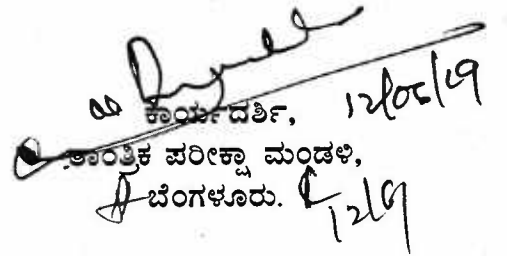 ಕಾರ್ಯದರ್ಶಿ, 12/08/19
ತಾಂತ್ರಿಕ ಪರೀಕ್ಷಾ ಮಂಡಳಿ,
ಬೆಂಗಳೂರು. 12/8